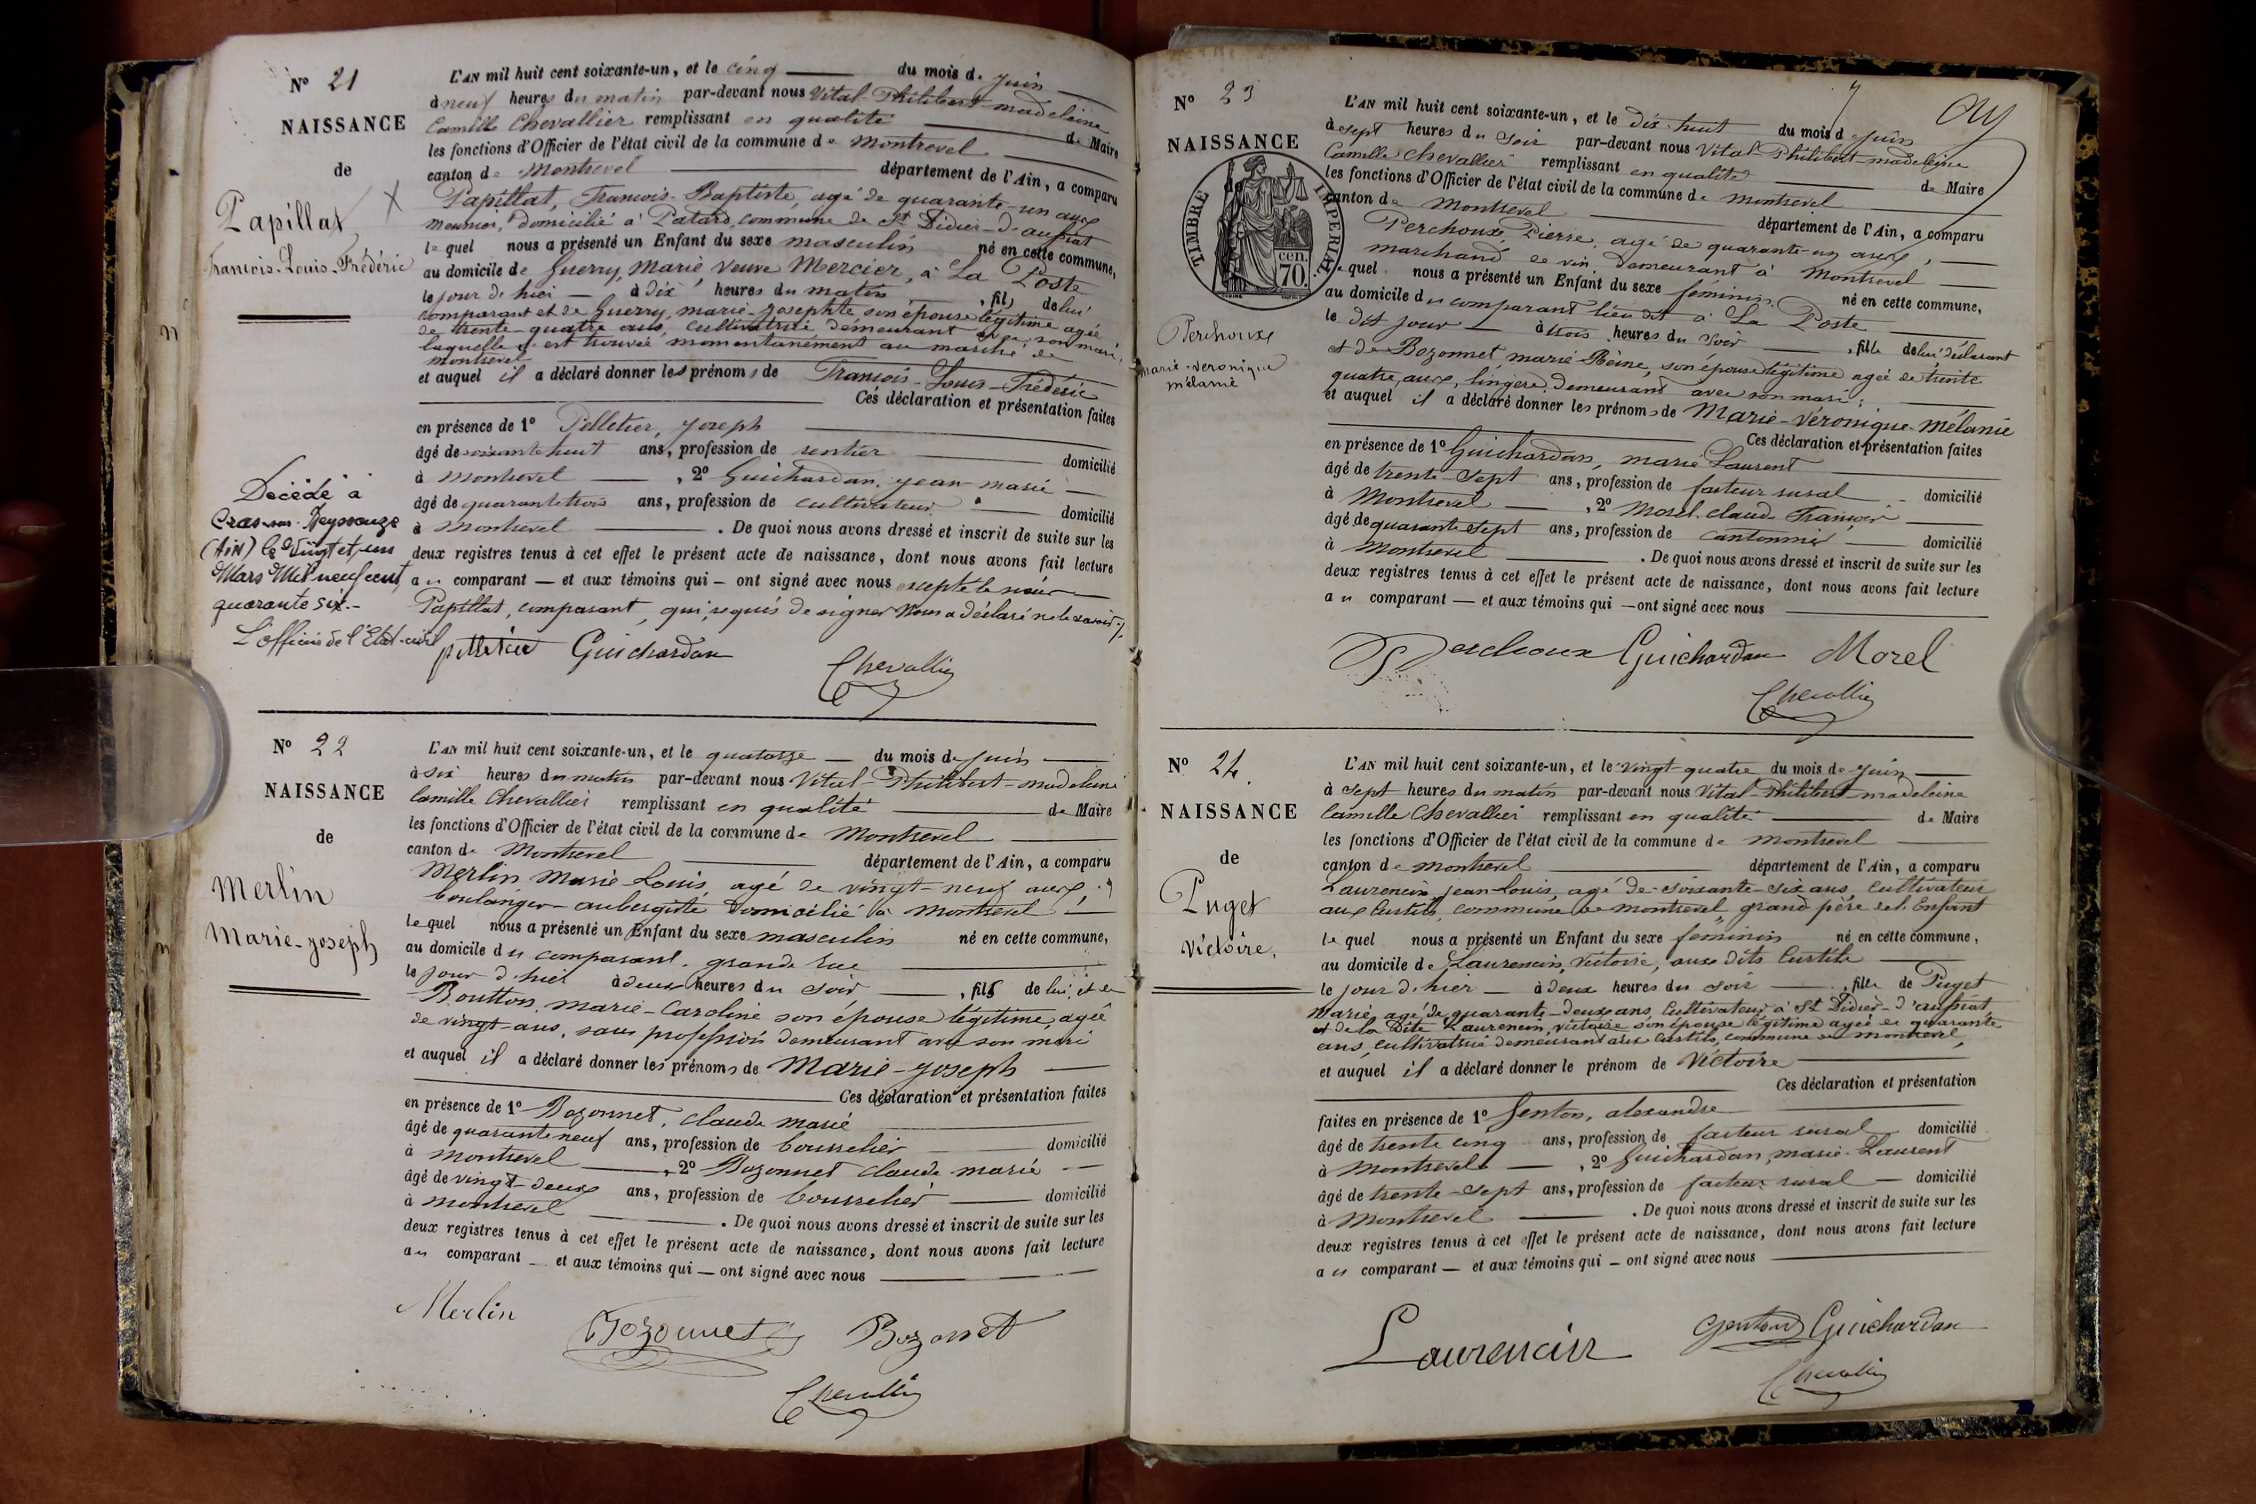 N° 21
NAISSANCE
de
Papillat
François-Louis-Frédéric
L'AN mil huit cent soixante-un, et le cinq du mois de juin
à neuf heures du matin par-devant nous Vital-Philibert-madeleine
Camille Chevallier remplissant en qualité de Maire
les fonctions d'Officier de l'état civil de la commune de Montrevel
canton de Montrevel département de l'Ain, a comparu
Papillat, François-Baptiste, agé de quarante-un ans
meunier, domicilié à Patard, commune de St Didier-d'aussiat
lequel nous a présenté un Enfant du sexe masculin né en cette commune,
au domicile de Guerry, Marie, veuve Mercier, à La Poste
le jour de hier à dix heures du matin, fils de lui
comparant et de Guerry, marie-josephte son épouse légitime agée
de trente-quatre ans, cultivatrice demeurant avec son mari,
laquelle s'est trouvée momentanément au marché de
montrevel
et auquel il a déclaré donner les prénoms de François-Louis-Frédéric
Ces déclaration et présentation faites
en présence de 1° Pelletier, joseph
âgé de soixante huit ans, profession de rentier domicilié
à montrevel, 2° Guichardan, jean marie
âgé de quarante trois ans, profession de cultivateur domicilié
à montrevel. De quoi nous avons dressé et inscrit de suite sur les
deux registres tenus à cet effet le présent acte de naissance, dont nous avons fait lecture
au comparant — et aux témoins qui — ont signé avec nous excepté le
Papillat, comparant, qui, requis de signer nous a déclaré ne le savoir
Décédé à
Cras-sur-Reyssouze
(AIN) le vingt et un
Mars Mil neuf cent
quarante six.-
L'Officier de l'Etat-civil
Pelletier Guichardan
Chevallier
N° 22
NAISSANCE
de
Merlin
Marie-joseph
L'AN mil huit cent soixante-un, et le quatorze du mois de juin
à six heures du matin par-devant nous Vital-Philibert-madeleine
Camille Chevallier remplissant en qualité de Maire
les fonctions d'Officier de l'état civil de la commune de Montrevel
canton de Montrevel département de l'Ain, a comparu
Merlin Marie-Louis, agé de vingt-neuf ans,
boulanger-aubergiste domicilié à Montrevel
lequel nous a présenté un Enfant du sexe masculin né en cette commune,
au domicile du comparant, grande rue
le jour d'hier à deux heures du soir, fils de lui, et de
Boutton, marie-Caroline son épouse légitime, agée
de vingt-ans, sans profession demeurant avec son mari
et auquel il a déclaré donner les prénoms de Marie-joseph
Ces déclaration et présentation faites
en présence de 1° Bozonnet, claude marie
âgé de quarante neuf ans, profession de bourrelier domicilié
à montrevel, 2° Bozonnet claude-marie
âgé de vingt-deux ans, profession de bourrelier domicilié
à montrevel. De quoi nous avons dressé et inscrit de suite sur les
deux registres tenus à cet effet le présent acte de naissance, dont nous avons fait lecture
au comparant — et aux témoins qui — ont signé avec nous
Merlin Bozonnet Bozonnet
Chevallier
7
N° 23
NAISSANCE
TIMBRE IMPERIAL
70 cen.
Perchoux
marie-veronique
mélanie
L'AN mil huit cent soixante-un, et le dix-huit du mois de juin
à sept heures du soir par-devant nous Vital-Philibert-madeleine
Camille Chevallier remplissant en qualité de Maire
les fonctions d'Officier de l'état civil de la commune de montrevel
canton de Montrevel département de l'Ain, a comparu
Perchoux, Pierre, agé de quarante-un ans,
marchand de vin demeurant à Montrevel
lequel nous a présenté un Enfant du sexe féminin né en cette commune,
au domicile du comparant lieu dit à La Poste
le dit jour à trois heures du soir, fille de lui déclarant
et de Bozonnet, marie-Reine, son épouse légitime agée de trente
quatre ans, lingère, demeurant avec son mari;
et auquel il a déclaré donner les prénoms de Marie-Véronique-Mélanie
Ces déclaration et présentation faites
en présence de 1° Guichardan, marie Laurent
âgé de trente-sept ans, profession de facteur rural domicilié
à Montrevel, 2° Morel claude François
âgé de quarante sept ans, profession de cantonnier domicilié
à Montrevel. De quoi nous avons dressé et inscrit de suite sur les
deux registres tenus à cet effet le présent acte de naissance, dont nous avons fait lecture
au comparant — et aux témoins qui — ont signé avec nous
Perchoux Guichardan Morel
Chevallier
N° 24.
NAISSANCE
de
Puget
Victoire,
L'AN mil huit cent soixante-un, et le vingt-quatre du mois de juin
à sept heures du matin par-devant nous Vital-Philibert-madeleine
Camille Chevallier remplissant en qualité de Maire
les fonctions d'Officier de l'état civil de la commune de montrevel
canton de montrevel département de l'Ain, a comparu
Laurencin jean-Louis, agé de soixante-six ans, cultivateur
aux Curtils, commune de montrevel, grand père de l'Enfant
lequel nous a présenté un Enfant du sexe féminin né en cette commune,
au domicile de Laurencin, Victoire, aux dits Curtils
le jour d'hier à deux heures du soir, fille de Puget
marie, agé de quarante-deux ans, cultivateur à St Didier-d'aussiat,
et de la dite Laurencin, Victoire son épouse légitime agée de quarante
ans, cultivatrice demeurant aux Curtils, commune de montrevel,
et auquel il a déclaré donner le prénom de Victoire
Ces déclaration et présentation
faites en présence de 1° Genton, alexandre
âgé de trente cinq ans, profession de facteur rural domicilié
à Montrevel, 2° Guichardan, marie-Laurent
âgé de trente-sept ans, profession de facteur rural domicilié
à Montrevel. De quoi nous avons dressé et inscrit de suite sur les
deux registres tenus à cet effet le présent acte de naissance, dont nous avons fait lecture
au comparant — et aux témoins qui — ont signé avec nous
Laurencin Genton Guichardan
Chevallier